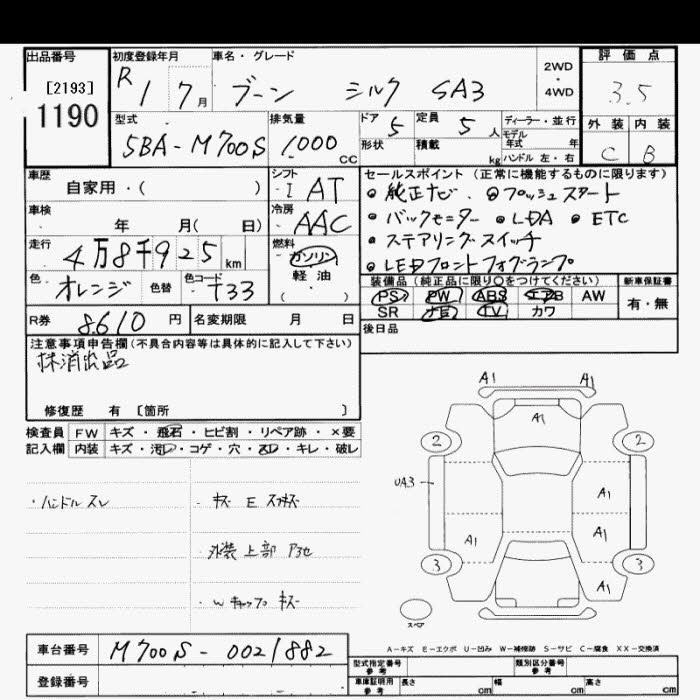 出品番号 初度登録年月 車名・グレード 2WD・4WD 評価点
[2193] R 1 7月 ブーン シルク SA3 3.5
1190 型式 排気量 ドア 定員 ディーラー・並行 外装 内装
5BA-M700S 1000 CC 5 5人 モデル年式 年
形状 積載 kg ハンドル 左・右 C B
車歴 シフト セールスポイント (正常に機能するものに限ります)
自家用・( ) I AT ●純正ナビ. ●プッシュスタート
車検 冷房 ●バックモニター ●LDA ●ETC
年 月( 日) AAC ●ステアリングスイッチ
走行 燃料 ●LEDフロントフォグランプ
4万8千925 km ガソリン
軽油
( ・ )
色 オレンジ 色替 色コード T33 装備品 (純正品に限り○をつけてください) 新車保証書
PS PW ABS エアB AW 有・無
SR ナビ TV カワ
R券 8610 円 名変期限 月 日 後日品
注意事項申告欄(不具合内容等は具体的に記入して下さい)
抹消出品
修復歴 有 〔箇所 〕
検査員 FW キズ・飛石・ヒビ割・リペア跡・×要
記入欄 内装 キズ・汚レ・コゲ・穴・スレ・キレ・破レ
・ハンドルスレ ・キズ E スリキズ
・外装上部
・Wキャップ キズ
A1 A1
A1
2 2
UA3
A1
A1 A1
3 3
A1
スペア
A-キズ E-エクボ U-凹み W-補修跡 S-サビ C-腐食 XX-交換済
車台番号 M700S-0021882
登録番号
型式指定番号 参考 類別区分番号 参考
車庫証明用 参考 長さ cm 幅 cm 高さ cm